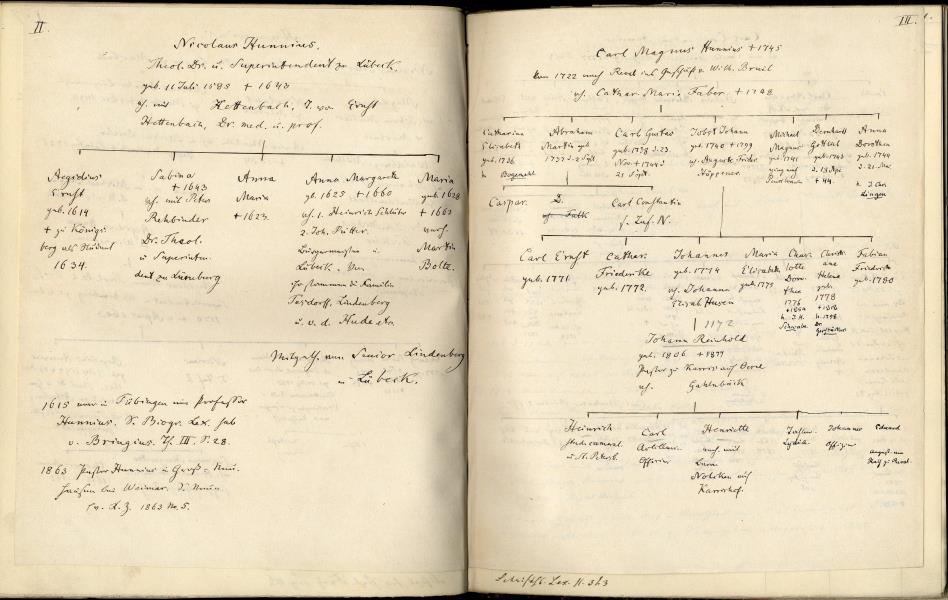 II.
Nicolaus Hunnius.
Theol. Dr. u. Superintendent zu Lübeck.
geb. 11 Juli 1585 + 1643
vh. mit Hettenbach, T. von Ernst
Hettenbach, Dr. med. u. prof.
Aegidius
Ernst
geb. 1614
+ zu Königs-
berg als
1634.
Sabina
+ 1643
vh. mit Peter
Rehbinder
Dr. Theol.
u. Superinten-
dent zu Lüneburg
Anna
Maria
+ 1623.
Anna Margareta
gb. 1625 + 1660
vh. 1. Heinrich Schlüter
2. Joh. Ritter.
Bürgermeister in
Lübeck.
stammen d. Familien
Tesdorff, Lindenberg
u. v. d. Hude etc.
Maria
geb. 1628
+ 1663
verh.
Martin
Bolte.
Mitgeth. vom Senior Lindenberg
in Lübeck.
1615 war in Tübingen ein Professor
Hunnius. S. Biogr. Lex.
v. Bringius. Th. III. S. 28.
1863 Pastor Hunnius in Groß-
hausen bei Weimar. S.
Ev. K. Z. 1863 No. 5.
III.
Carl Magnus Hunnius + 1745
kam 1722 nach Reval ins Geschäft v. Wilh. Bruil
vh. Cathar. Maria Faber + 1748
Catharina
Elisabeth
geb. 1736
Abraham
Martin geb
1737 d. 2 Sept.
Carl Gustav
geb. 1738 d. 23.
Nov + 1744 d
21 Sept.
Jobst Johann
geb. 1740 + 1799
vh. Auguste Frider.
Höppener.
Michael
Magnus
geb. 1741
Bernhard
Gottlieb
geb. 1743
d. 18 Apr.
+ 44.
Anna
Dorothea
geb. 1744
Caspar.
vh. Falk
Carl Constantin
s. Taf. IV.
Carl Ernst
geb. 1771.
Cathar.
Friederike
geb. 1772.
Johannes
geb. 1774
vh. Johanna
Elisab Huren
Maria
Elisabeth
geb. 1775
Char-
lotte
Doro-
thea
1776
+ 1854
Christi-
ane
Helene
geb.
1778
+ 1856
h. 1798
Dr.
Fabian
Friedrich
geb. 1780
Johann Reinhold
geb. 1806 + 1877
Pastor zu Karris auf Oesel
vh. Gahlnbäck
Heinrich
Stud. cameral.
in St. Petersb.
Carl
Artillerie
Offizier
Henriette
verh. mit
Baron
Nolcken auf
Karrishof.
Lydia
Johannes
Offizier
Eduard
Schriftst. Lex. II. 363